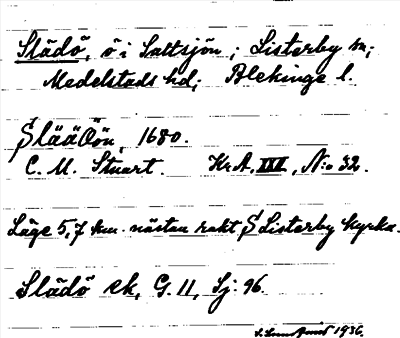 Slädö, ö i Saltsjön; Listerby sn;
Medelstads hd; Blekinge l.
Slääöön, 1680.
C. M. Stuart. Kr A. XXI, N:o 32.
Läge 5,7 km. nästan rakt S Listerby kyrka.
Slädö ek, G. 11, Sj: 96.
1936.